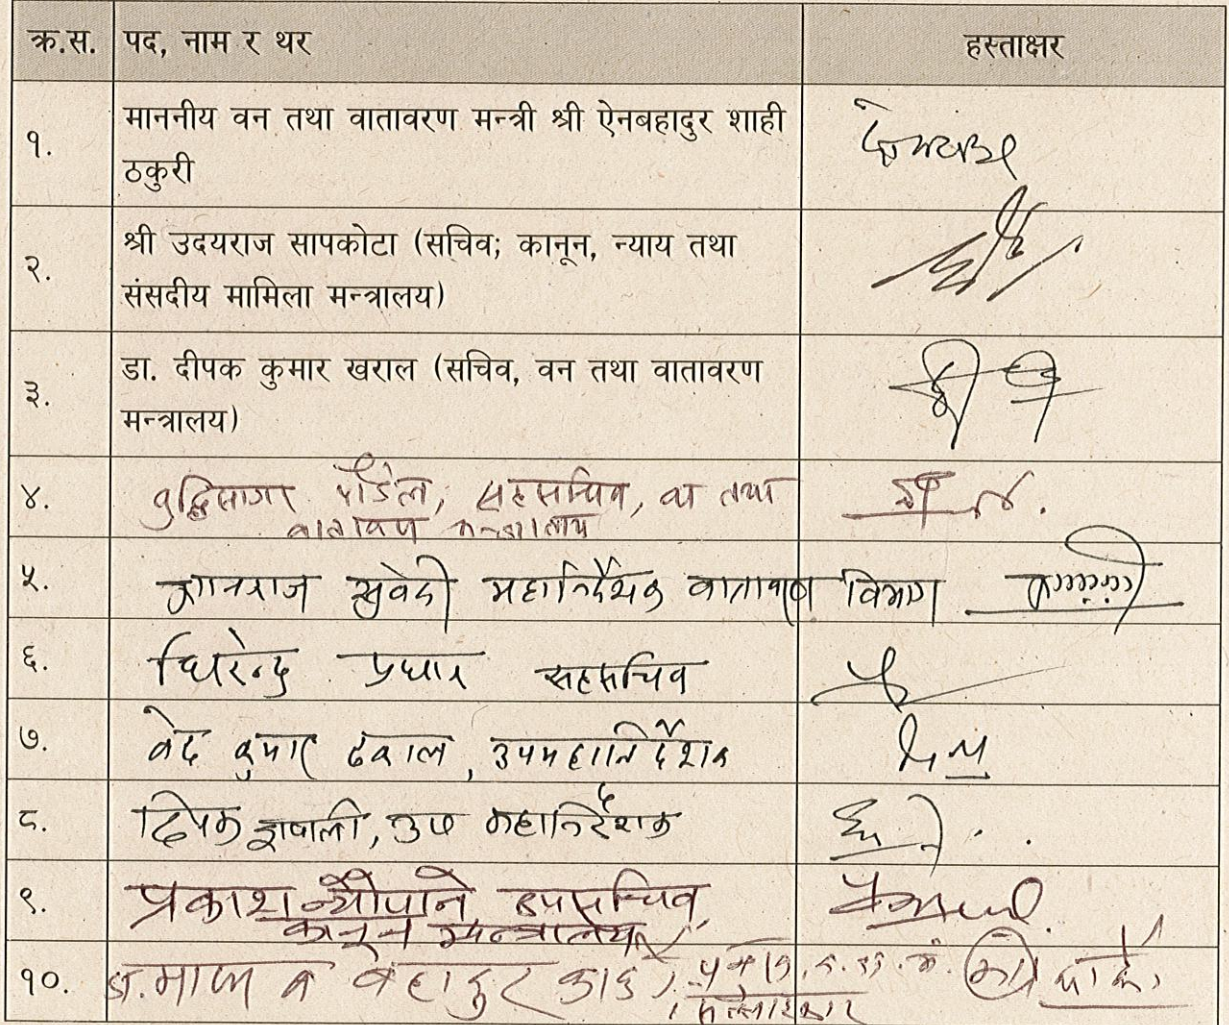 क्र.स. पद, नाम र थर हस्ताक्षर
१. माननीय वन तथा वातावरण मन्त्री श्री ऐनबहादुर शाही
ठकुरी
२. श्री उदयराज सापकोटा (सचिव; कानून, न्याय तथा
संसदीय मामिला मन्त्रालय)
३. डा. दीपक कुमार खराल (सचिव, वन तथा वातावरण
मन्त्रालय)
४. बुद्धिसागर पौडेल, सहसचिव, वन तथा
वातावरण मन्त्रालय
५. ज्ञानराज सुवेदी महानिर्देशक वातावरण विभाग
६. धिरेन्द्र प्रधान सहसचिव
७. वेद कुमार ढकाल, उपमहानिर्देशक
८. दिपक ज्ञवाली, उप महानिर्देशक
९. प्रकाश न्यौपाने, उपसचिव,
कानून मन्त्रालय
१०. डा. बहादुर